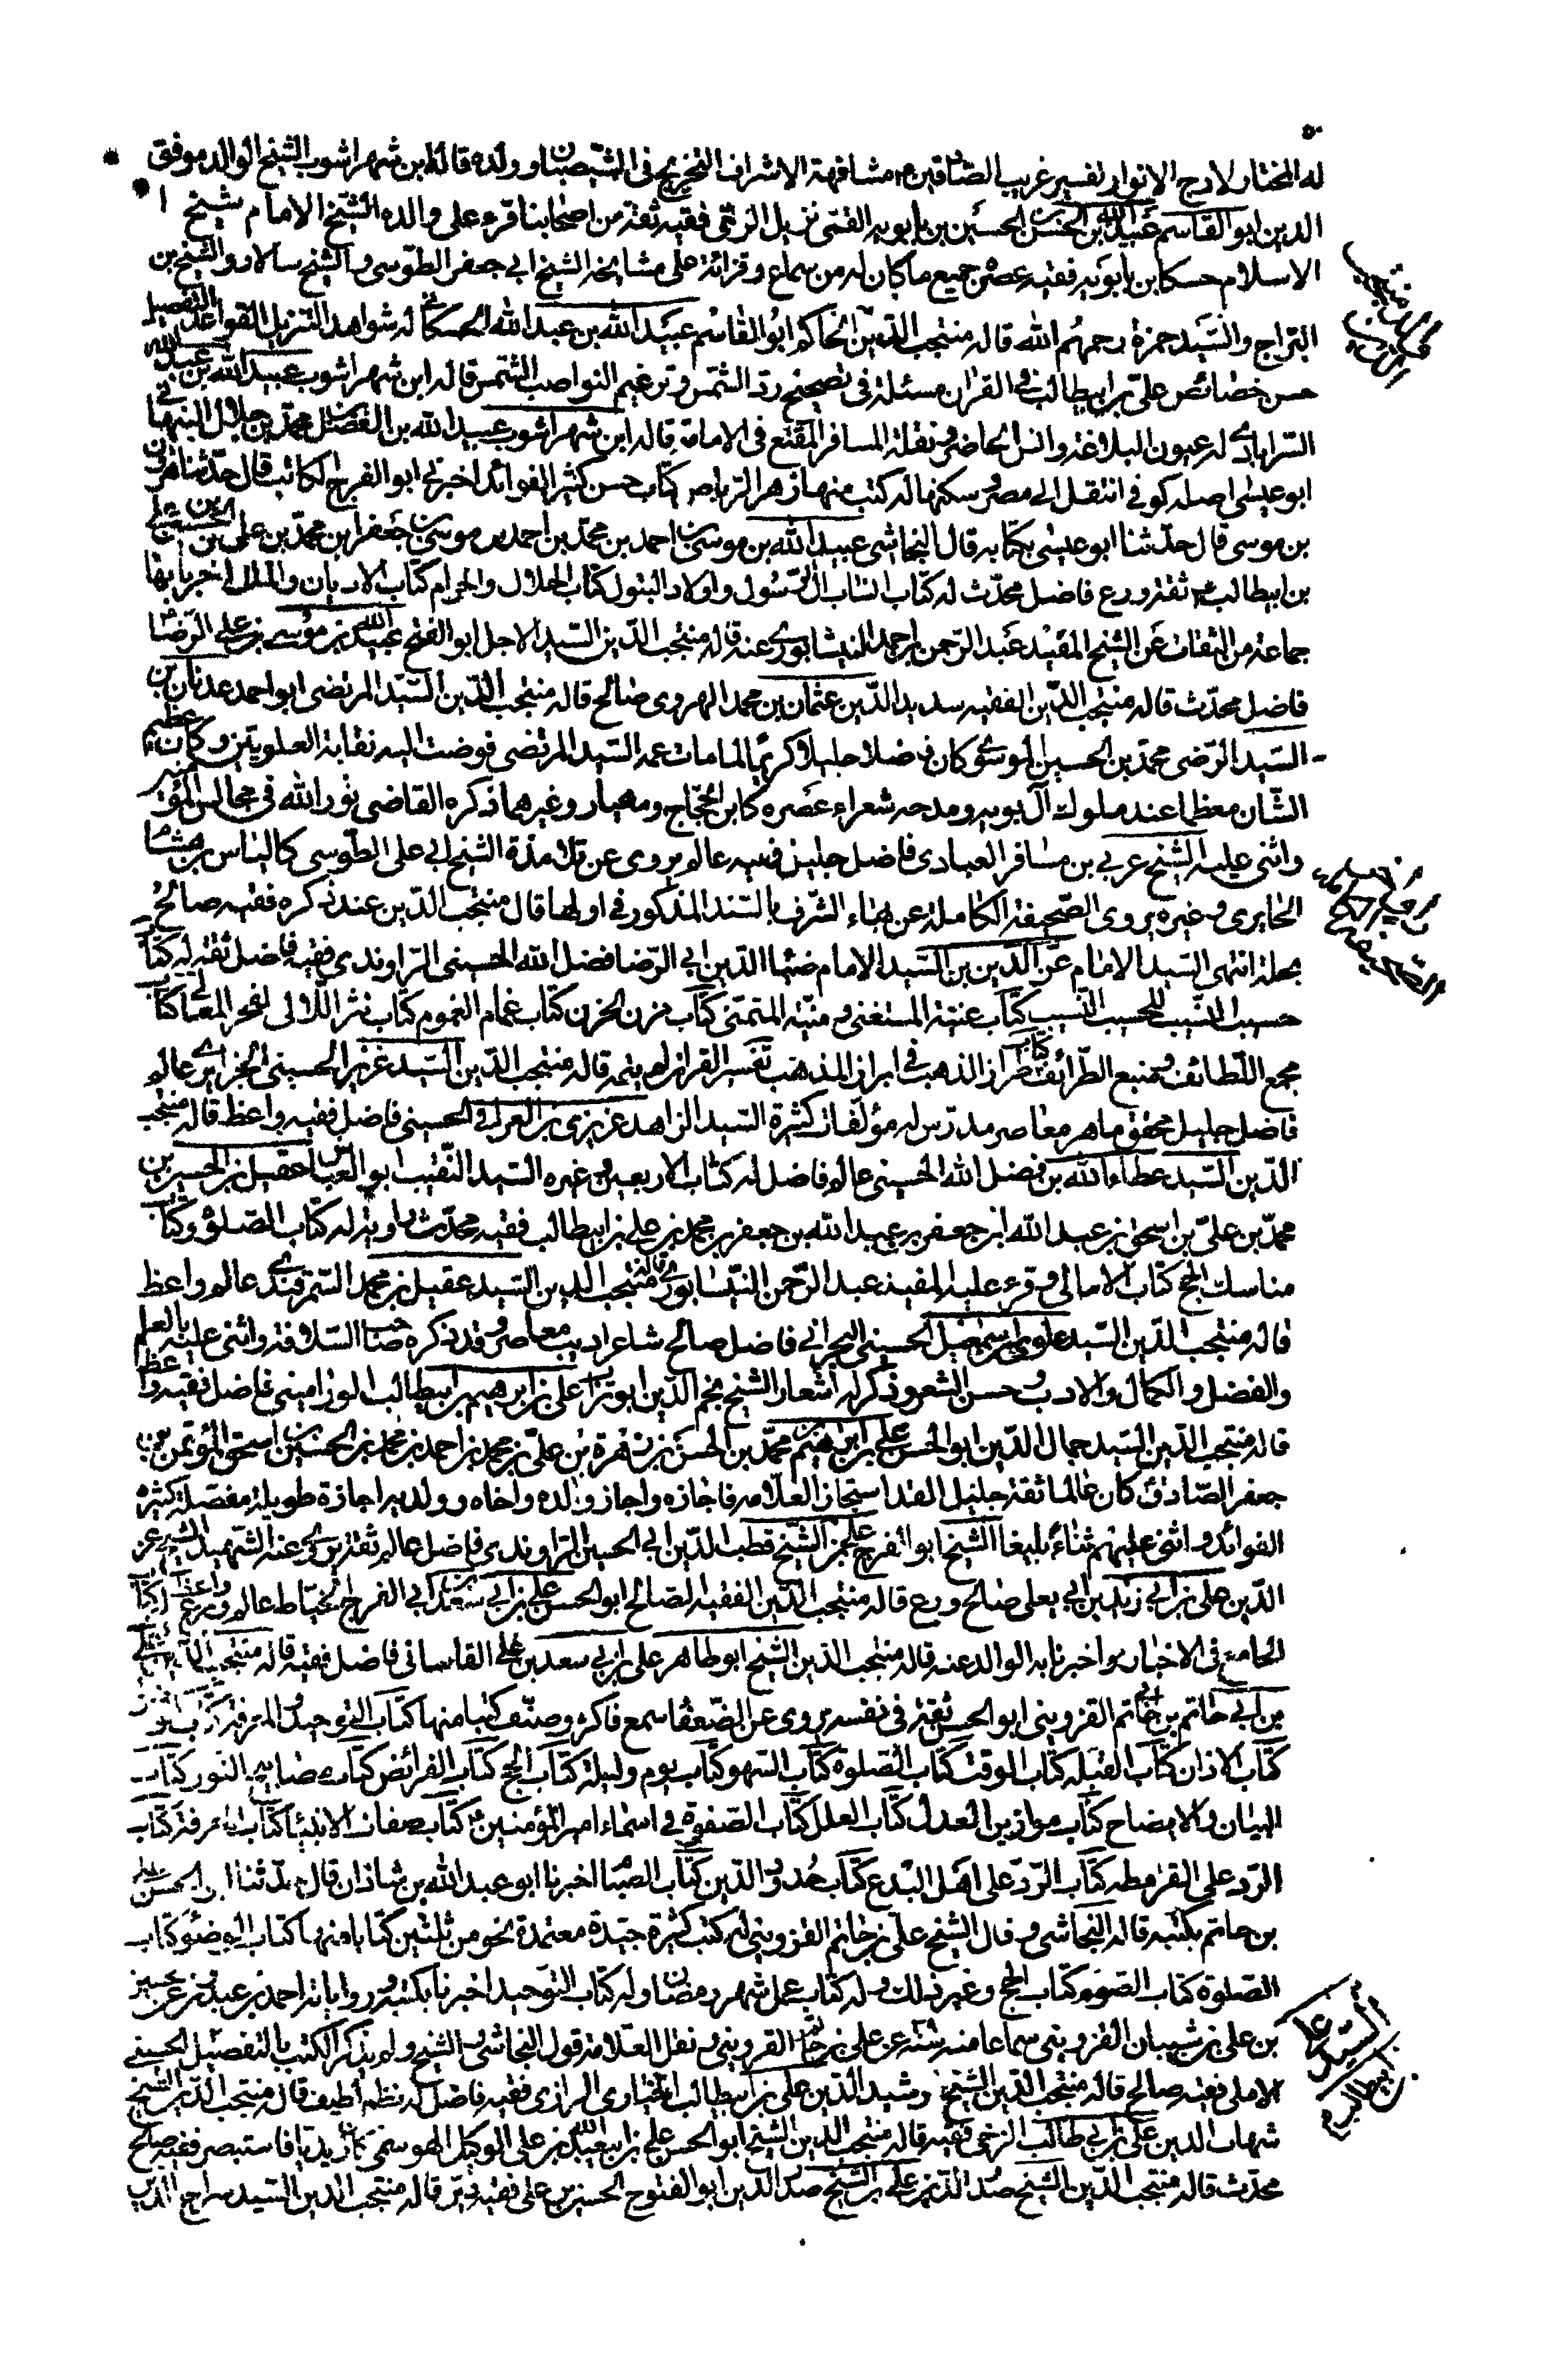 له المختار لادج الانوار تفسير غريب الصادقين ع مشافهة الاشراف التخريج في الشيصبان اوولده قاله ابن شهراشوب الشيخ الوالد موفق
الدين ابو القاسم عبيد الله بن الحسن بن الحسين بن بابويه القمي نزيل الري فقيه ثقة من اصحابنا قرء على والده الشيخ الامام شيخ
الاسلام حسكا بن بابويه فقيه عصره جميع ما كان له من سماع وقرائة على مشايخه الشيخ ابي جعفر الطوسي والشيخ سالار والشيخ بن
البراج والسيد حمزة رحمهم الله قاله منتجب الدين الحاكم ابو القاسم عبيد الله بن عبد الله الحسكاني له شواهد التنزيل لقواعد التفضيل
حسن خصائص علي بن ابيطالب في القران مسئلة في تصحيح رد الشمس وترغيم النواصب الشمس قاله ابن شهراشوب عبيد الله بن عبد الله
السترابادي له عيون البلاغة وانس الحاضر ونقلة المسافر المقنع في الامامة قاله ابن شهراشوب عبيد الله بن الفضل بن محمد بن هلال النبهاني
ابو عيسى اصله كوفي انتقل الى مصر وسكنها له كتب منها زهر الرياض كتاب حسن كثير الفوائد اخبرني ابو الفرج الكاتب قال حدثنا هرون
بن موسى قال حدثنا ابو عيسى بكتابه قال النجاشي عبيد الله بن موسى بن احمد بن محمد بن احمد بن موسى بن جعفر ابن محمد بن على بن الحسين بن علي
بن ابيطالب ع ثقة ورع فاضل محدث له كتاب انساب ال الرسول واولاد البتول كتاب الحلال والحرام كتاب الاديان والملل اخبرنا بها
جماعة من الثقات عن الشيخ المفيد عبد الرحمن بن احمد النيشابوري عنه قاله منتجب الدين السيد الاجل ابو الفتح عبيد الله بن موسى بن علي الرضا
فاضل محدث قاله منتجب الدين الفقيه سديد الدين عثمان بن محمد الهروي صالح قاله منتجب الدين السيد المرتضى ابو احمد عدنان بن
السيد الرضى محمد بن الحسين الموسوي كان فاضلا جليلا كريما لما مات عمه السيد المرتضى فوضت اليه نقابة العلويين وكان عظيم
الشان معظما عند ملوك آل بويه ومدحه شعراء عصره كابن الحجاج ومهيار وغيرهما ذكره القاضى نور الله في مجالس المؤمنين
واثنى عليه الشيخ عربي بن مسافر العبادي فاضل جليل فقيه عالم يروى عن تلامذة الشيخ ابي على الطوسى كالياس بن هشام
الحايرى وغيره يروى الصحيفة الكاملة عن بهاء الشرف بالسند المذكور في اولها قال منتجب الدين عند ذكره فقيه صالح
بحلة انتهى السيد الامام عز الدين بن السيد الامام ضياء الدين ابي الرضا فضل الله الحسيني الراوندى فقيه فاضل ثقة له كتاب
حسيب النسيب للحسيب النسيب كتاب غنية المستغنى ومنية المتمنى كتاب مزن الحزن كتاب غمام الغموم كتاب نثر اللآلى لفخر المعالى كتاب
مجمع اللطائف ومنبع الطرائف كتاب طراز الذهب في ابراز المذهب تفسير القران لم يتمه قاله منتجب الدين السيد عزيز الحسيني الجزايري عالم
فاضل جليل محقق ماهر معاصر مدرس له مؤلفات كثيرة السيد الزاهد عزيزي بن العراقي الحسينى فاضل فقيه واعظ قاله منتجب
الدين السيد عطاء الله بن فضل الله الحسينى عالم فاضل له كتاب الاربعين وغيره السيد النقيب ابو العباس عقيل بن الحسين بن
محمد بن علي بن اسحق بن عبد الله ابن جعفر بن عبيد الله بن جعفر بن محمد بن علي بن ابيطالب فقيه محدث راوية له كتاب الصلوة وكتاب
مناسك الحج كتاب الامالى وقرء عليه المفيد عبد الرحمن النيسابوري قاله منتجب الدين السيد عقيل بن محمد السمرقندي عالم واعظ
قاله منتجب الدين السيد علوى بن اسمعيل الحسيني البحراني فاضل صالح شاعر اديب معاصر وقد ذكره صاحب السلافة واثنى عليه بالعلم
والفضل والكمال والادب وحسن الشعر وذكر له اشعار الشيخ نجم الدين ابو تراب علي بن ابرهيم بن ابيطالب الوراميني فاضل فقيه واعظ
قاله منتجب الدين السيد جمال الدين ابو الحسن علي بن ابرهيم بن محمد بن الحسن بن زهرة بن علي بن محمد بن احمد بن محمد بن الحسين بن اسحق المؤتمن بن
جعفر الصادق كان عالما ثقة جليل القدر استجاز العلامة فاجازه واجاز والده واخاه وولديه اجازة طويلة مفصلة كثيرة
الفوائد واثنى عليهم ثناء بليغا الشيخ ابو الفرج علي بن الشيخ قطب الدين ابي الحسين الراوندى فاضل عالم ثقة يروي عنه الشهيد السيد عز
الدين علي بن ابي زيد بن ابي يعلى صالح ورع قاله منتجب الدين الفقيه الصالح ابو الحسن علي بن ابي سعد بن ابي الفرج الخياط عالم ورع واعظ له كتاب
الجامع في الاخبار اخبرنا به الوالد عنه قاله منتجب الدين الشيخ ابو طاهر علي بن ابي سعد بن علي القاساني فاضل فقيه قاله منتجب الدين علي
بن ابي حاتم بن ابي حاتم القزويني ابو الحسن ثقة في نفسه يروى عن الضعفا سمع فاكثر وصنف كتبا منها كتاب التوحيد والمعرفة كتاب الوضوء
كتاب الاذان كتاب القبلة كتاب الوقت كتاب الصلوة كتاب السهو كتاب يوم وليلة كتاب الحج كتاب الفرائض كتاب مصابيح النور كتاب
البيان والايضاح كتاب موازين العدل كتاب العلل كتاب الصفوة في اسماء امير المؤمنين ع كتاب صفات الانبياء كتاب المعرفة كتاب
الرد على القرامطة كتاب الرد على اهل البدع كتاب حدود الدين كتاب الصيام اخبرنا ابو عبد الله بن شاذان قال حدثنا ابو الحسن علي
بن حاتم بكتبه قاله النجاشى وقال الشيخ علي بن حاتم القزويني له كتب كثيرة جيدة معتمدة نحو من ثلثين كتابا منها كتاب الوضوء كتاب
الصلوة كتاب الصوم كتاب الحج وغير ذلك وله كتاب عمل شهر رمضان وله كتاب التوحيد اخبرنا بكتبه ورواياته احمد بن عبدون عن الحسين
بن على بن شيبان القزوينى سماعا منه سنة عن على بن حاتم القزويني ونقل العلامة قول النجاشي والشيخ ولم يذكر الكتب بالتفصيل الحسيني
الاملى فقيه صالح قاله منتجب الدين الشيخ رشيد الدين علي بن ابيطالب الخبازى الرازى فقيه فاضل له نظم لطيف قاله منتجب الدين الشيخ
شهاب الدين على بن ابي طالب الزنجي فقيه قاله منتجب الدين الشيخ ابو الحسن علي بن ابي عبيد الله بن على الوكيل الهوسمى كان زيديا فاستبصر فقيه صالح
محدث قاله منتجب الدين الشيخ صدر الدين علي بن الشيخ صدر الدين ابو الفتوح الحسين بن على فقيه دين قاله منتجب الدين السيد سراج الدين
السيد علي
بن ابيطالب